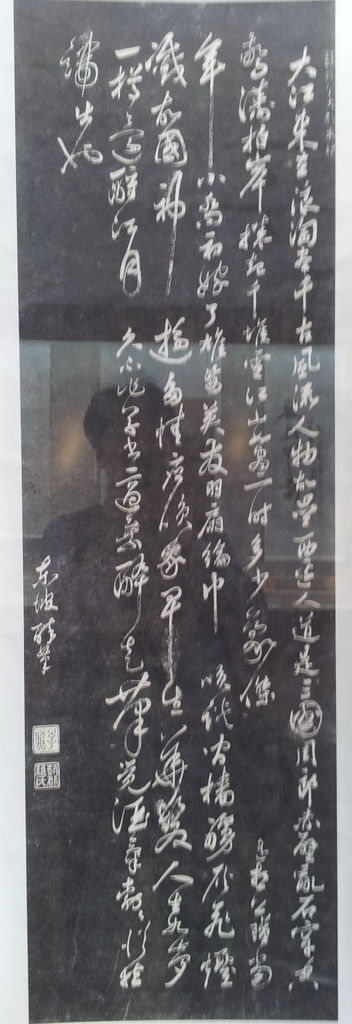 大江東去浪淘盡千古風流人物故壘西邊人道是三國周郎赤壁亂石穿空
驚濤拍岸捲起千堆雪江山如畫一時多少豪傑遙想公瑾當
年小喬初嫁了雄姿英發羽扇綸巾笑談間檣艣灰飛煙
滅故國神遊多情應笑我早生華髮人生如夢
一樽還酹江月久不作草書適乘醉走筆覺酒氣勃勃從指
端出也
東坡醉筆